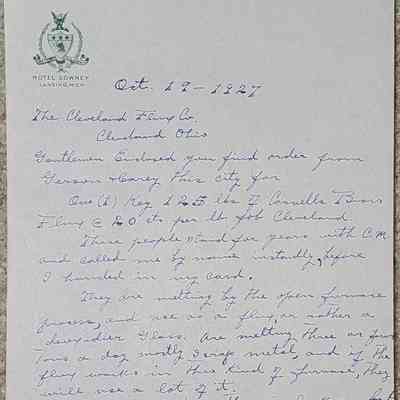 HOTEL DOWNEY
LANSING, MICH.
Oct. 19 - 1927
The Cleveland Flux Co.
Cleveland Ohio
Gentlemen Enclosed you find order from
Gerson & Carey this city for
One (1) Keg 125 lbs of Cornells Brass
Flux @ 20 cts per lb fob Cleveland
These people stand for years with C.M.
and called me by name instantly, before
I handed in my card.
They are melting by the open furnace
process, and use as a flux, or rather a
deoxidier Glass. Are melting three or four
Tons a day mostly scrap metal, and if the
flux works in this kind of furnace, they
will use a lot of it.